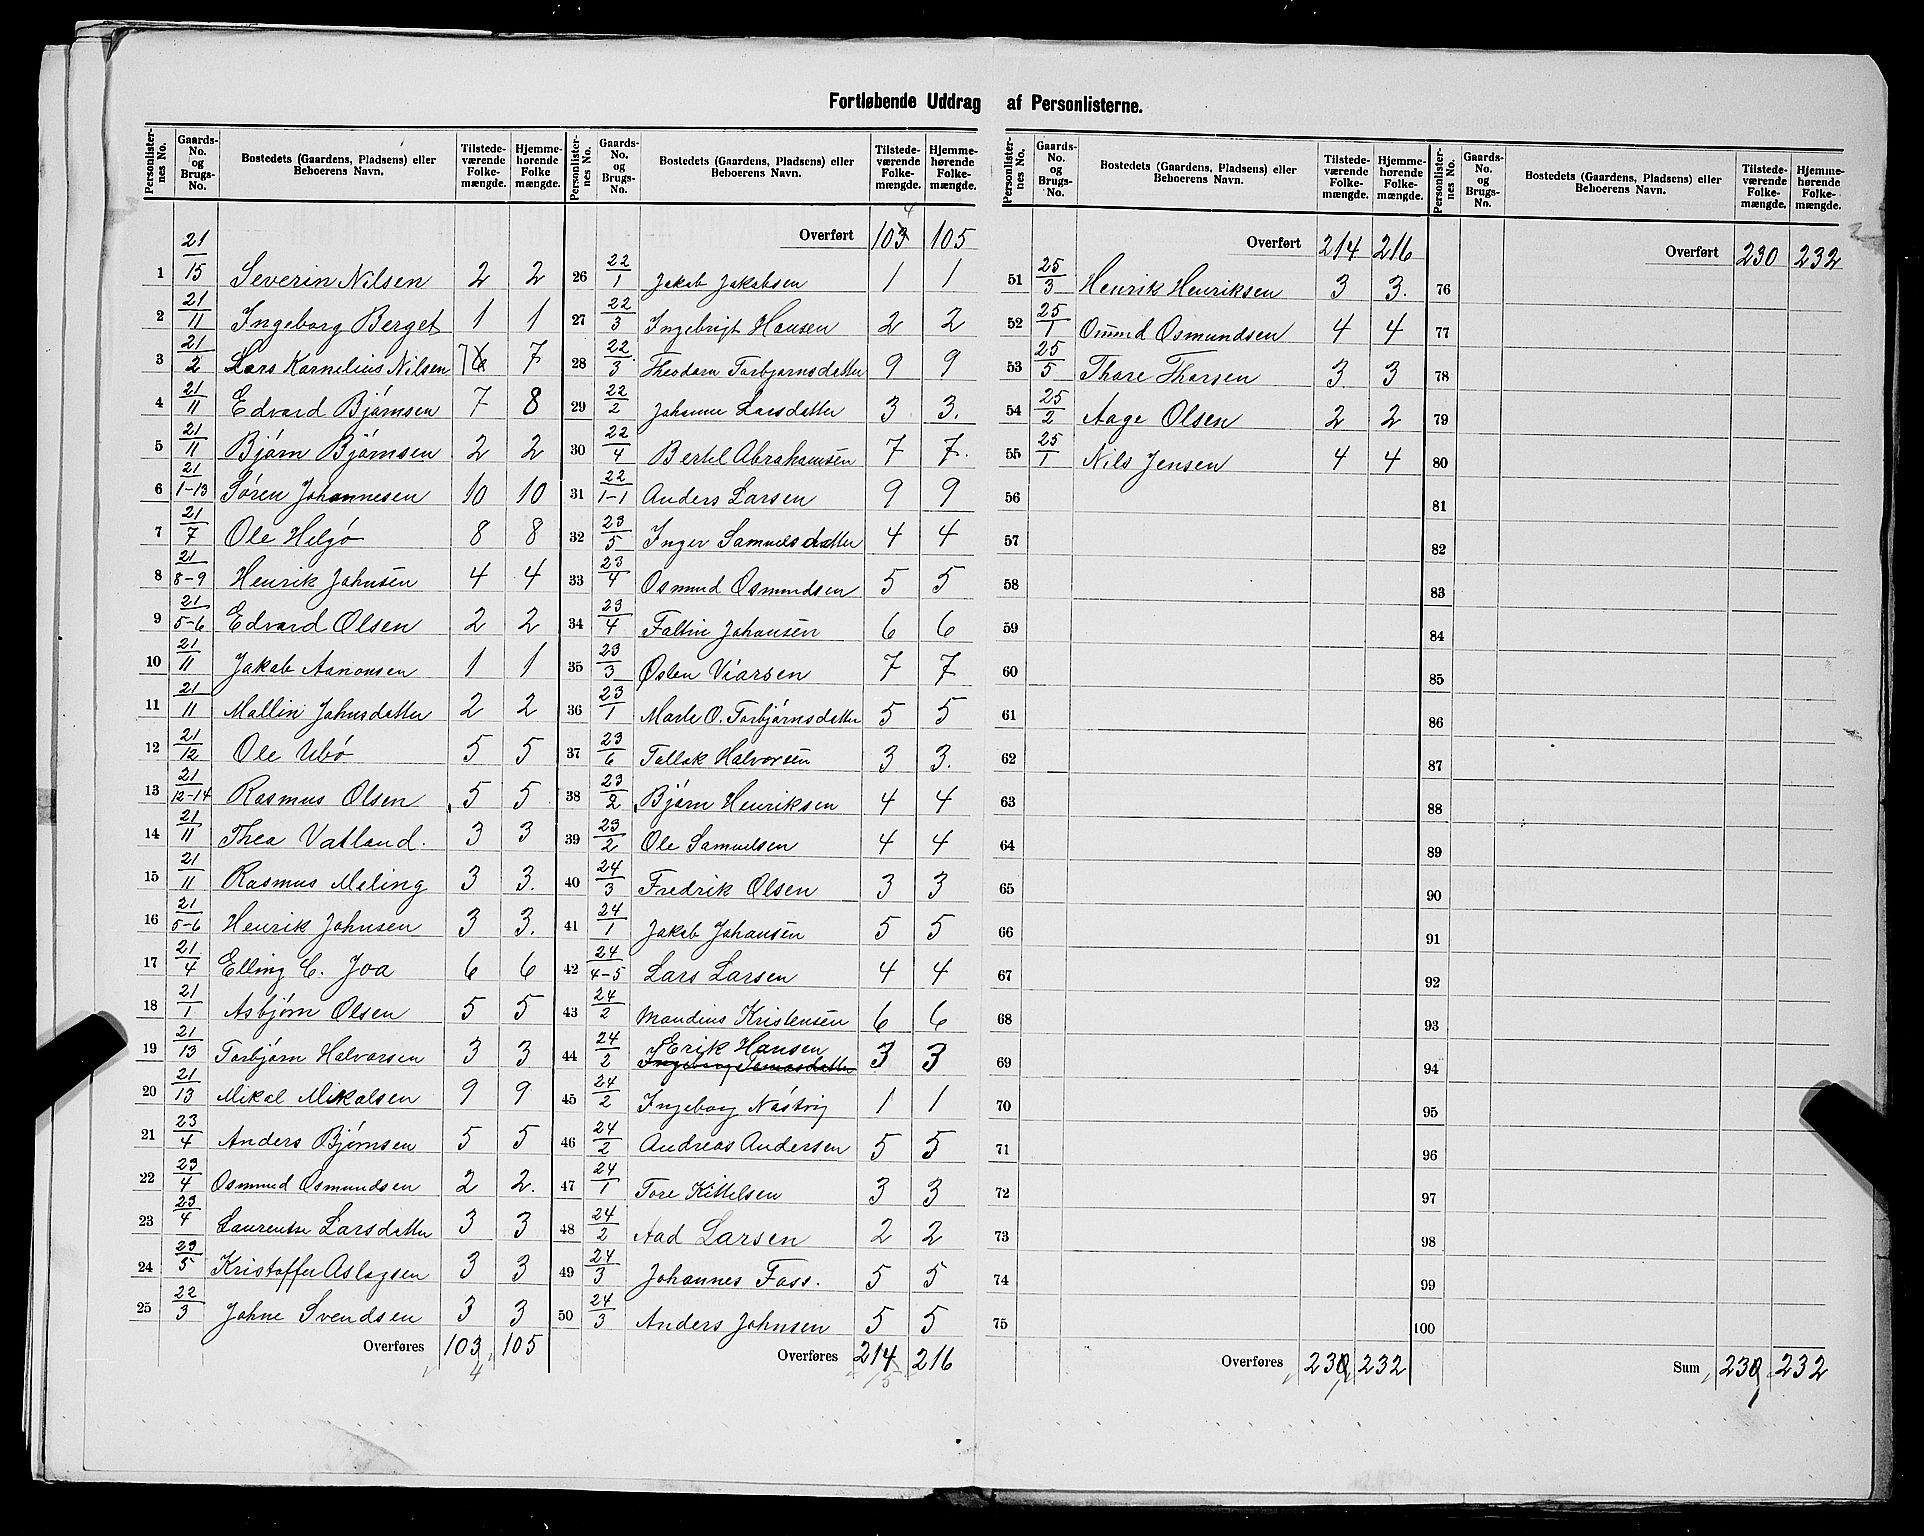 Fortløbende Uddrag af Personlisterne.
Personlister-nes No. Gaards-No. og Brugs-No. Bostedets (Gaardens, Pladsens) eller Beboerens Navn. Tilstede-værende Folke-mængde. Hjemme-hørende Folke mængde.
1 21/15 Severin Nilsen 2 2
2 21/11 Ingeborg Berget 1 1
3 21/2 Lars Kornelius Nilsen 7 7
4 21/11 Edvard Bjørnsen 7 8
5 21/11 Bjørn Bjørnsen 2 2
6 21/1-13 Søren Johannesen 10 10
7 21/7 Ole Helgø 8 8
8 21/8-9 Henrik Johnsen 4 4
9 21/5-6 Edvard Olsen 2 2
10 21/11 Jakob Aanonsen 1 1
11 21/11 Mallin Johnsdatter 2 2
12 21/12 Ole Ubø 5 5
13 21/12-14 Rasmus Olsen 5 5
14 21/11 Thea Vatland. 3 3
15 21/11 Rasmus Meling 3 3.
16 21/5-6 Henrik Johnsen 3 3.
17 21/4 Elling C. Joa 6 6
18 21/1 Asbjørn Olsen 5 5
19 21/13 Torbjørn Halvorsen 3 3
20 21/13 Mikal Mikalsen 9 9
21 23/4 Anders Bjørnsen 5 5
22 23/4 Osmund Osmundsen 2 2.
23 23/4 Laurentse Larsdatter 3 3
24 23/5 Kristoffer Aslagsen 3 3
25 22/3 Johne Svendsen 3 3
Overføres 103 105
4
Personlister-nes No. Gaards-No. og Brugs-No. Bostedets (Gaardens, Pladsens) eller Beboerens Navn. Tilstede-værende Folke-mængde. Hjemme-hørende Folke-mængde.
4
Overført 103 105
26 22/1 Jakob Jakobsen 1 1
27 22/3 Ingebrigt Hansen 2 2
28 22/3 Theodora Torbjørnsdatter 9 9
29 22/2 Johanne Larsdatter 3 3.
30 22/4 Bertel Abrahamsen 7 7.
31 22/1-1 Anders Larsen 9 9
32 23/5 Inger Samuelsdatter 4 4
33 23/4 Osmund Osmundsen 5 5
34 23/4 Faltin Johansen 6 6
35 23/3 Østen Viarsen 7 7
36 23/1 Marte O. Torbjørnsdatter 5 5
37 23/6 Tallak Halvorsen 3 3.
38 23/2 Bjørn Henriksen 4 4
39 23/2 Ole Samuelsen 4 4
40 24/3 Fredrik Olsen 3 3
41 24/1 Jakob Johansen 5 5
42 24/4-5 Lars Larsen 4 4
43 24/2 Mandius Kristensen 6 6
44 24/2 Erik Hansen 3 3
45 24/2 Ingeborg Nästvig 1 1
46 24/2 Andreas Andersen 5 5
47 24/1 Tore Kittelsen 3 3
48 24/2 Aad Larsen 2 2
49 24/3 Johannes Foss. 5 5
50 24/3 Anders Johnsen 5 5
Overføres 214 216
5
Personlister-nes No. Gaards-No. og Brugs-No. Bostedets (Gaardens, Pladsens) eller Beboerens Navn. Tilstede-værende Folke-mængde. Hjemme-hørende Folke-mængde.
Overført 214 216
51 25/3 Henrik Henriksen 3 3.
52 25/1 Omund Osmundsen 4 4
53 25/5 Thore Thorsen 3 3
54 25/2 Aage Olsen 2 2
55 25/1 Nils Jensen 4 4
56
57
58
59
60
61
62
63
64
65
66
67
68
69
70
71
72
73
74
75
Overføres 230 232
Personlister-nes No. Gaards-No. og Brugs-No. Bostedets (Gaardens, Pladsens) eller Beboerens Navn. Tilstede-værende Folke-mængde. Hjemme-hørende Folke-mængde.
Overført 230 232
76
77
78
79
80
81
82
83
84
85
86
87
88
89
90
91
92
93
94
95
96
97
98
99
100
Sum 230 232